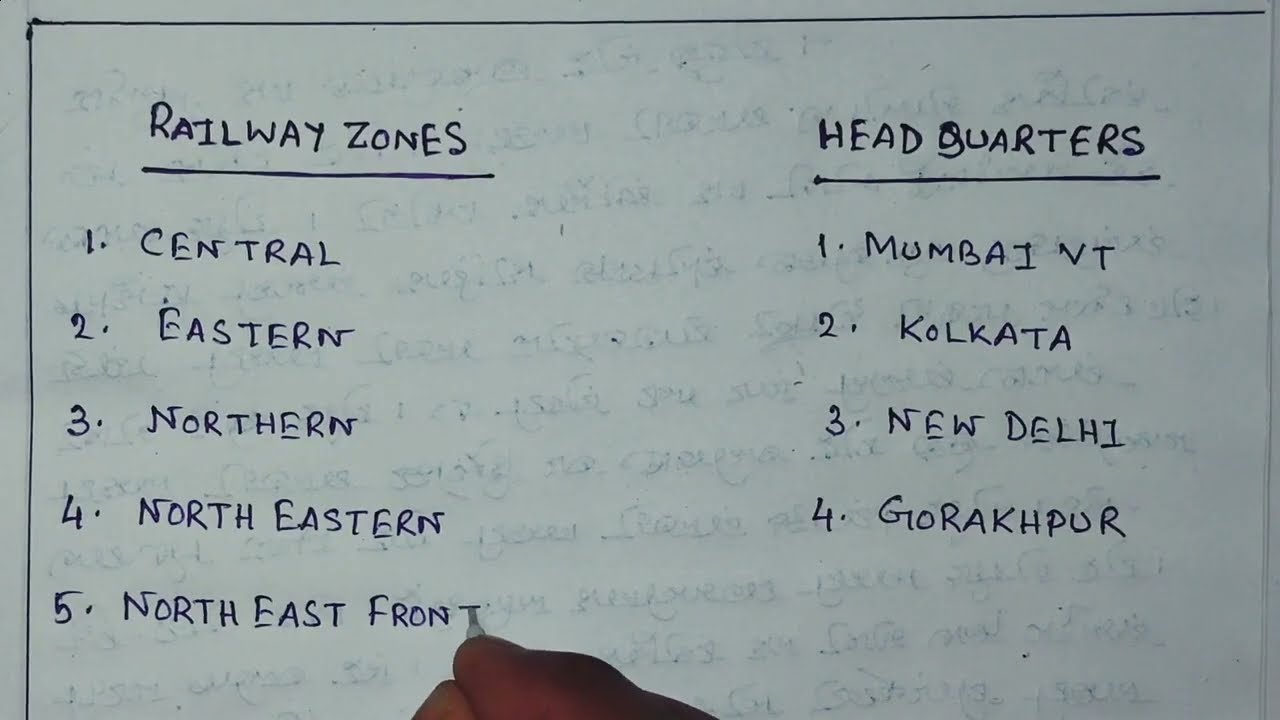 RAILWAY ZONES HEAD QUARTERS
1. CENTRAL 1. MUMBAI VT
2. EASTERN 2. KOLKATA
3. NORTHERN 3. NEW DELHI
4. NORTH EASTERN 4. GORAKHPUR
5. NORTH EAST FRONT